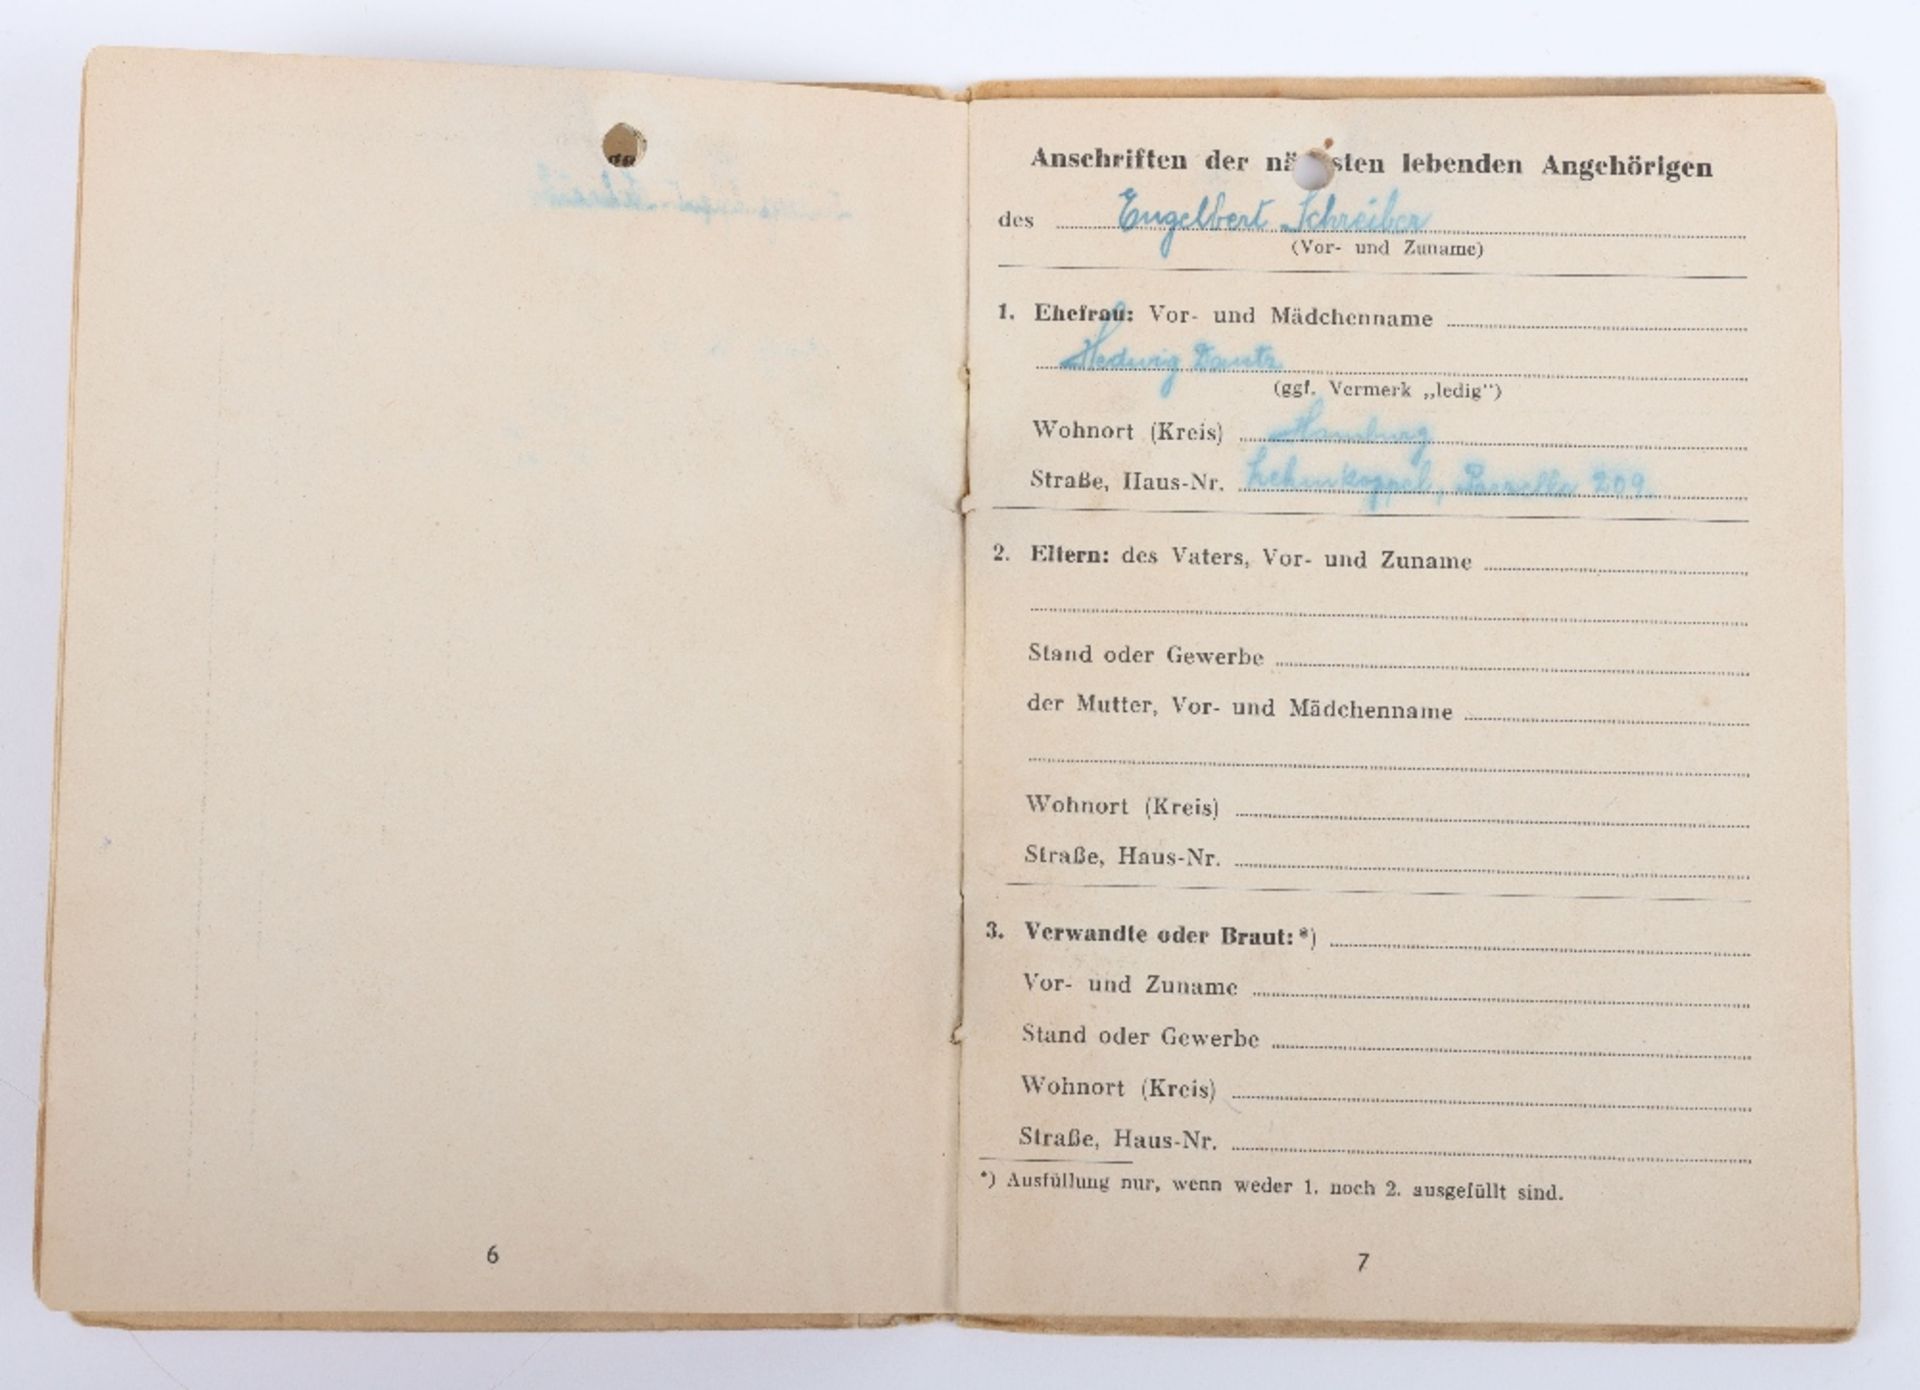 Anschriften der nä sten lebenden Angehörigen
des Engelbert Schreiber
(Vor- und Zuname)
1. Ehefrau: Vor- und Mädchenname
Hedwig
(ggf. Vermerk „ledig“)
Wohnort (Kreis) Hamburg
Straße, Haus-Nr. Lehmkoppel, Parzelle 209
2. Eltern: des Vaters, Vor- und Zuname
Stand oder Gewerbe
der Mutter, Vor- und Mädchenname
Wohnort (Kreis)
Straße, Haus-Nr.
3. Verwandte oder Braut:*)
Vor- und Zuname
Stand oder Gewerbe
Wohnort (Kreis)
Straße, Haus-Nr.
*) Ausfüllung nur, wenn weder 1. noch 2. ausgefüllt sind.
6
7